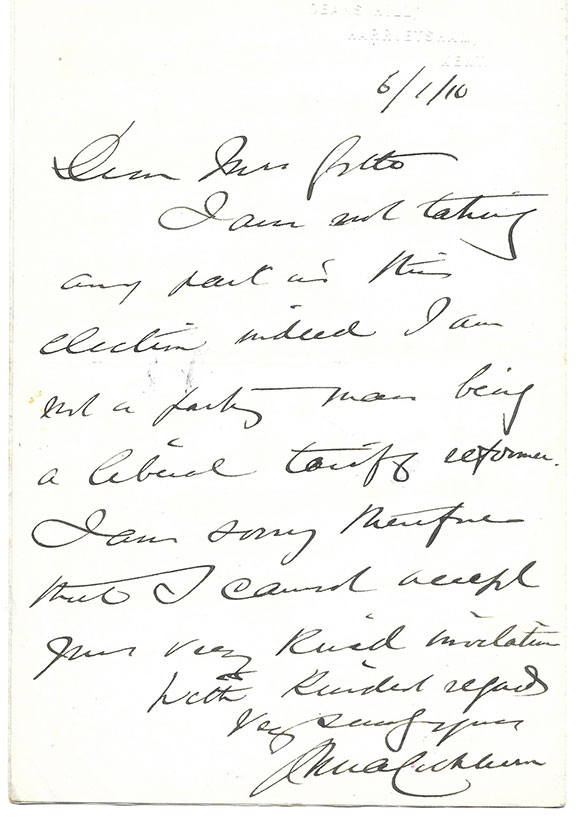 DEANS HILL,
HARRIETSHAM,
KENT.
6/1/10
Dear Mrs Gotto
I am not taking
any part in this
election indeed I am
not a party man being
a liberal tariff reformer.
I am sorry therefore
that I cannot accept
your very kind invitation
With kindest regards
Very sincerely yours
John A Cockburn